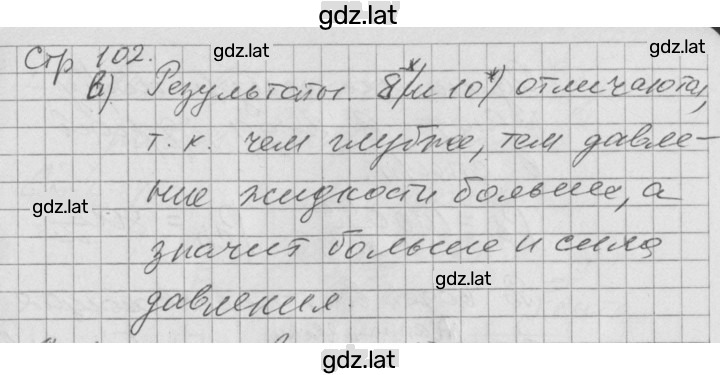 gdz.lat
gdz.lat
gdz.lat
Стр 102.
в) Результаты 8*) и 10*) отличаются,
т.к. чем глубже, тем давле-
gdz.lat
ние жидкости больше, а
значит больше и сила
gdz.lat
давления.
gdz.lat